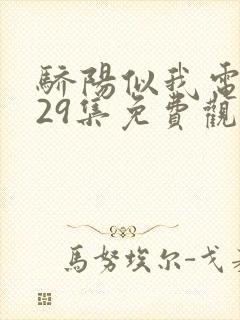 驕陽似我電
29集免費觀
馬努埃尔-戈